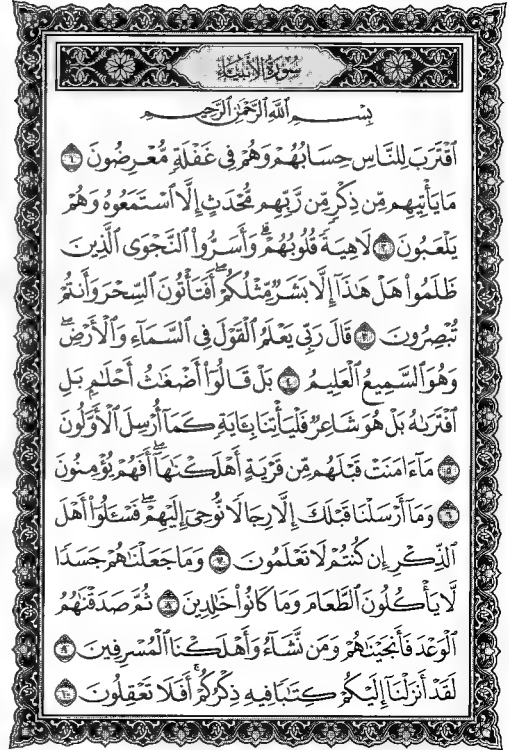 سُورَةُ الأَنبِيَاءِ
بِسْمِ اللَّهِ الرَّحْمَٰنِ الرَّحِيمِ
اقْتَرَبَ لِلنَّاسِ حِسَابُهُمْ وَهُمْ فِي غَفْلَةٍ مُّعْرِضُونَ ١
مَا يَأْتِيهِم مِّن ذِكْرٍ مِّن رَّبِّهِم مُّحْدَثٍ إِلَّا اسْتَمَعُوهُ وَهُمْ
يَلْعَبُونَ ٢ لَاهِيَةً قُلُوبُهُمْ ۗ وَأَسَرُّوا النَّجْوَى الَّذِينَ
ظَلَمُوا هَلْ هَٰذَا إِلَّا بَشَرٌ مِّثْلُكُمْ ۖ أَفَتَأْتُونَ السِّحْرَ وَأَنتُمْ
تُبْصِرُونَ ٣ قَالَ رَبِّي يَعْلَمُ الْقَوْلَ فِي السَّمَاءِ وَالْأَرْضِ ۖ
وَهُوَ السَّمِيعُ الْعَلِيمُ ٤ بَلْ قَالُوا أَضْغَاثُ أَحْلَامٍ بَلِ
افْتَرَاهُ بَلْ هُوَ شَاعِرٌ فَلْيَأْتِنَا بِـَٔايَةٍ كَمَا أُرْسِلَ الْأَوَّلُونَ
٥ مَا ءَامَنَتْ قَبْلَهُم مِّن قَرْيَةٍ أَهْلَكْنَاهَا ۖ أَفَهُمْ يُؤْمِنُونَ
٦ وَمَا أَرْسَلْنَا قَبْلَكَ إِلَّا رِجَالًا نُّوحِي إِلَيْهِمْ ۖ فَسْـَٔلُوا أَهْلَ
الذِّكْرِ إِن كُنتُمْ لَا تَعْلَمُونَ ٧ وَمَا جَعَلْنَاهُمْ جَسَدًا
لَّا يَأْكُلُونَ الطَّعَامَ وَمَا كَانُوا خَالِدِينَ ٨ ثُمَّ صَدَقْنَاهُمُ
الْوَعْدَ فَأَنجَيْنَاهُمْ وَمَن نَّشَاءُ وَأَهْلَكْنَا الْمُسْرِفِينَ ٩
لَقَدْ أَنزَلْنَا إِلَيْكُمْ كِتَابًا فِيهِ ذِكْرُكُمْ ۖ أَفَلَا تَعْقِلُونَ ١٠